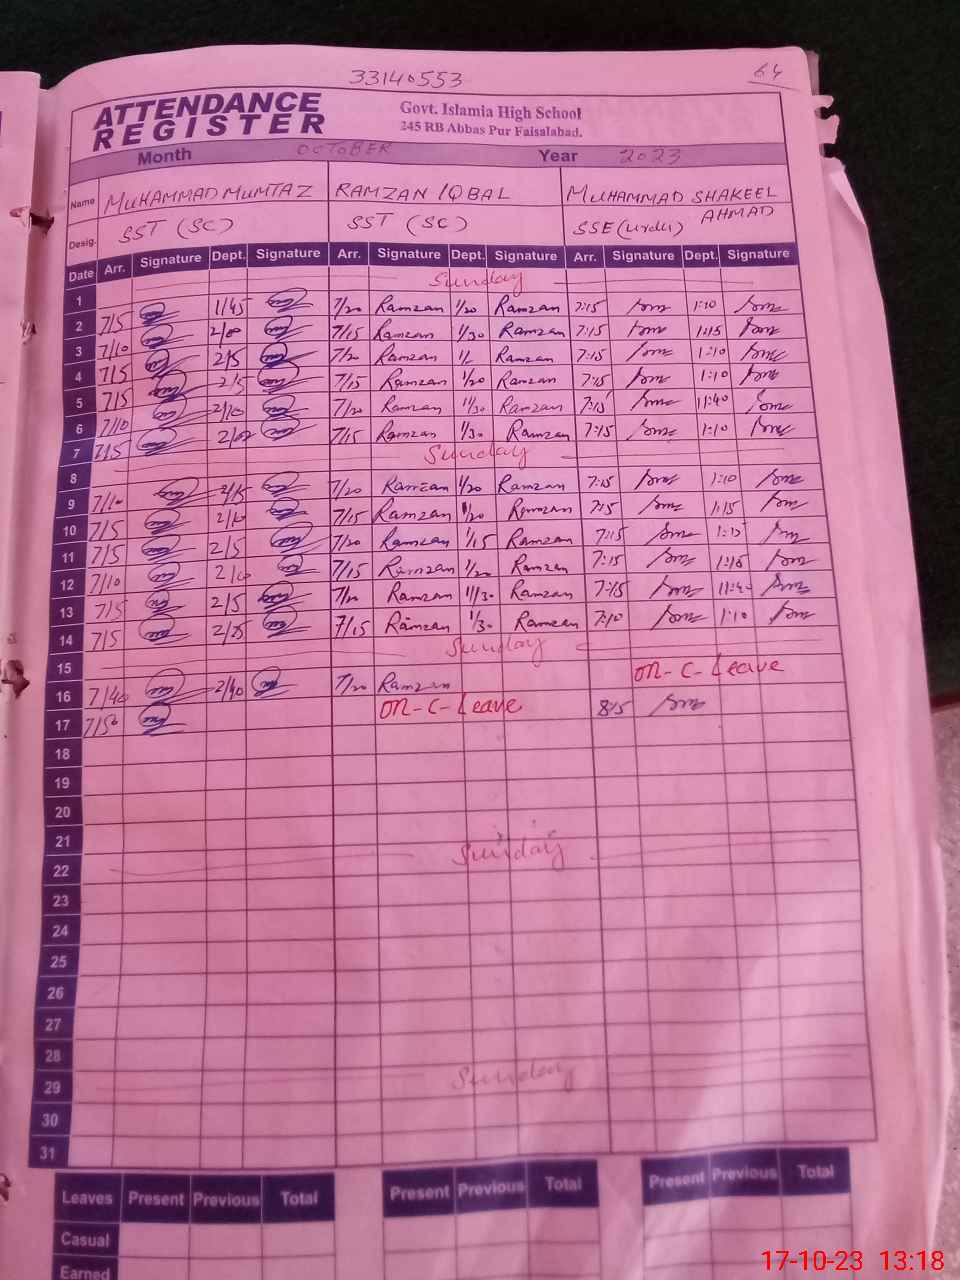 33140553
64
ATTENDANCE REGISTER
Govt. Islamia High School
245 RB Abbas Pur Faisalabad.
Month OCTOBER Year 2023
Name MUHAMMAD MUMTAZ RAMZAN IQBAL MUHAMMAD SHAKEEL AHMAD
Desig. SST (SC) SST (SC) SSE (urdu)
Date Arr. Signature Dept. Signature Arr. Signature Dept. Signature Arr. Signature Dept. Signature
1 Sunday
2 7/5 1/45 7/20 Ramzan 1/20 Ramzan 7:15 1:10
3 7/10 2/00 7/15 Ramzan 1/30 Ramzan 7:15 1:15
4 7/5 2/5 7/20 Ramzan Ramzan 7:15 1:10
5 7/5 2/5 7/15 Ramzan 1/20 Ramzan 7:15 1:10
6 7/10 2/10 7/20 Ramzan 11/30 Ramzan 7:15 11:40
7 7/5 2/00 7/15 Ramzan 1/30 Ramzan 7:15 1:10
8 Sunday
9 7/10 2/15 7/20 Ramzan 1/20 Ramzan 7:15 1:10
10 7/5 2/10 7/15 Ramzan 1/20 Ramzan 7:15 1:15
11 7/5 2/5 7/20 Ramzan 1/15 Ramzan 7:15 1:15
12 7/10 2/00 7/15 Ramzan 1/20 Ramzan 7:15 1:15
13 7/5 2/5 7/20 Ramzan 11/30 Ramzan 7:15 11:40
14 7/5 2/25 7/15 Ramzan 1/30 Ramzan 7:10 1:10
15 Sunday
16 7/40 2/40 7/20 Ramzan on-C-Leave
17 7/50 on-C-Leave 8:15
18
19
20
21
22 Sunday
23
24
25
26
27
28
29 Sunday
30
31
Leaves Present Previous Total Present Previous Total Present Previous Total
Casual
Earned
17-10-23 13:18